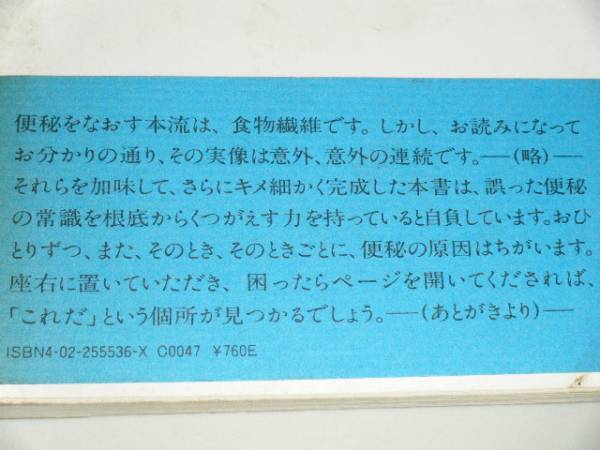 便秘をなおす本流は、食物繊維です。しかし、お読みになって
お分かりの通り、その実像は意外、意外の連続です。―(略)―
それらを加味して、さらにキメ細かく完成した本書は、誤った便秘
の常識を根底からくつがえす力を持っていると自負しています。おひ
とりずつ、また、そのとき、そのときごとに、便秘の原因はちがいます。
座右に置いていただき、困ったらページを開いてくだされば、
「これだ」という個所が見つかるでしょう。―(あとがきより)―
ISBN4-02-255536-X C0047 ¥760E